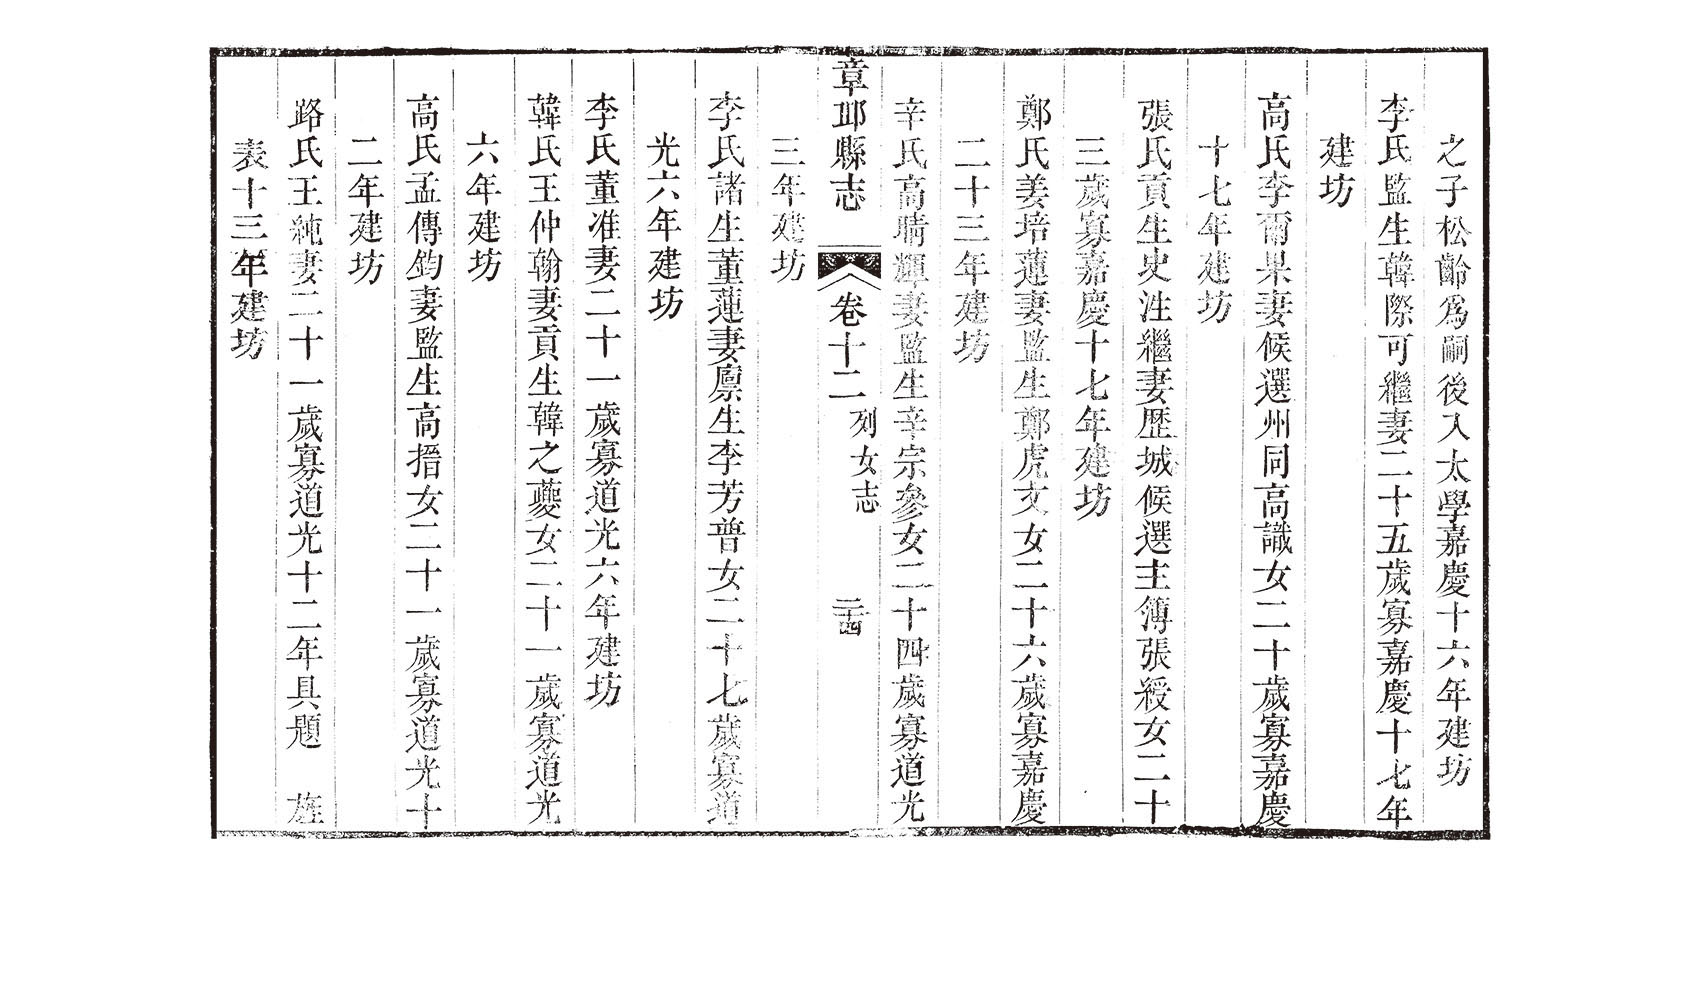 之子松齡爲嗣後入太學嘉慶十六年建坊
李氏監生韓際可繼妻二十五歲寡嘉慶十七年
建坊
高氏李爾果妻候選州同高識女二十歲寡嘉慶
十七年建坊
張氏貢生史泩繼妻歷城候選主簿張綬女二十
三歲寡嘉慶十七年建坊
鄭氏姜培蓮妻監生鄭虎文女二十六歲寡嘉慶
二十三年建坊
辛氏高晴輝妻監生辛宗參女二十四歲寡道光
三年建坊
章邱縣志 卷十二 列女志 二十四
李氏諸生董蓮妻廩生李芳普女二十七歲寡道
光六年建坊
李氏董准妻二十一歲寡道光六年建坊
韓氏王仲翰妻貢生韓之夔女二十一歲寡道光
六年建坊
高氏孟傳鈞妻監生高搢女二十一歲寡道光十
二年建坊
路氏王純妻二十一歲寡道光十二年具題 旌
表十三年建坊